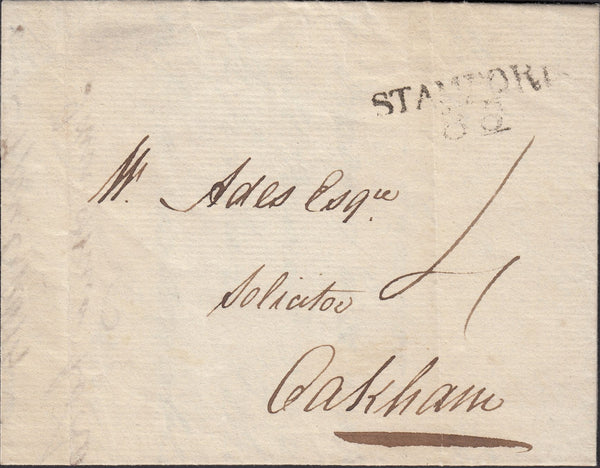 STAMFORD
Wm. Ades Esqre.
Solicitor
Oakham